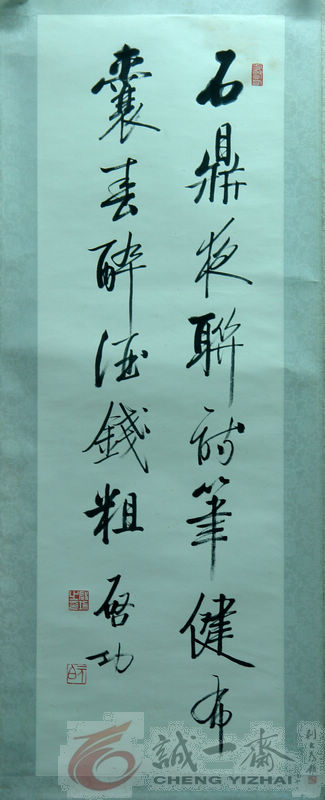 石鼎夜聯詩筆健布
囊春醉酒錢粗
啓功
誠一齋
CHENG YIZHAI